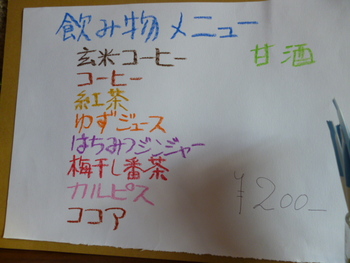 飲み物メニュー
玄米コーヒー
コーヒー
紅茶
ゆずジュース
はちみつジンジャー
梅干し番茶
カルピス
ココア
甘酒
¥200-